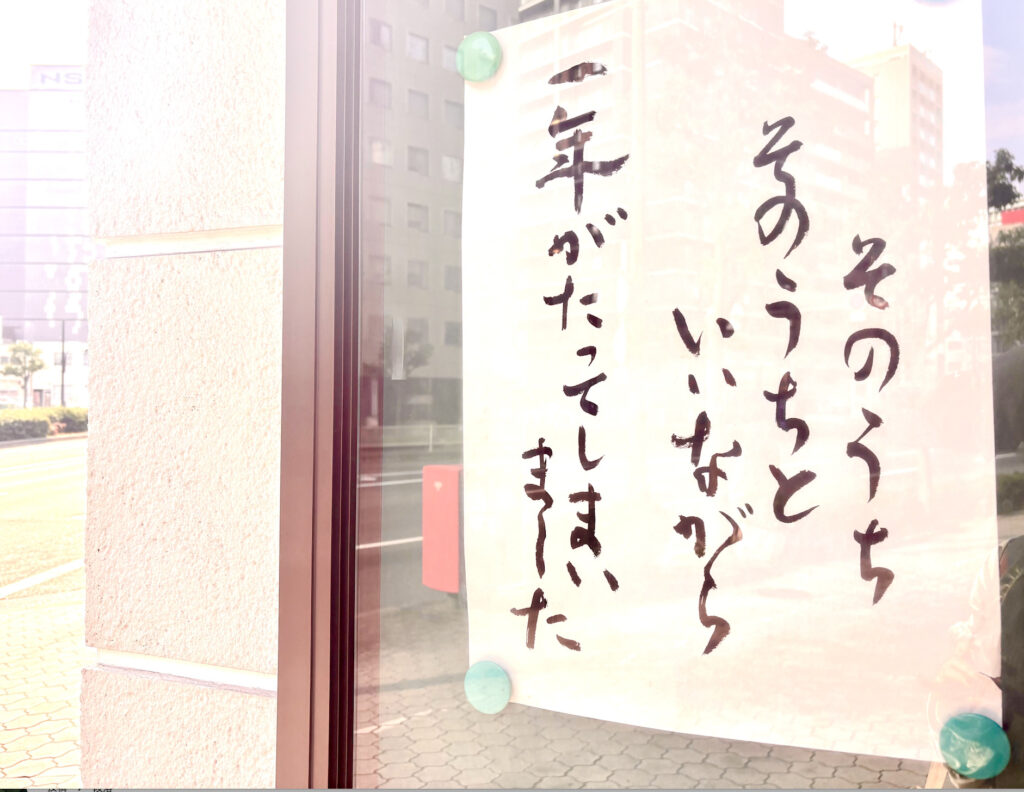 そのうち
そのうちと
いいながら
一年がたってしまい
ました
NS